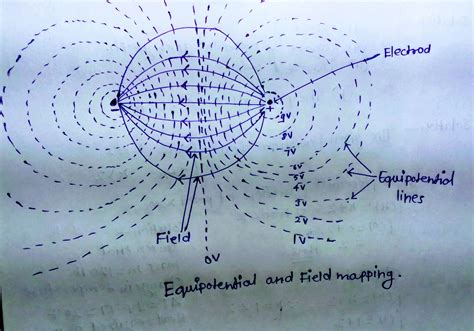 Electrod
+
9V
8V
7V
6V
5V
4V
3V
2V
1V
Equipotential
lines
Field
0V
Equipotential and Field mapping.